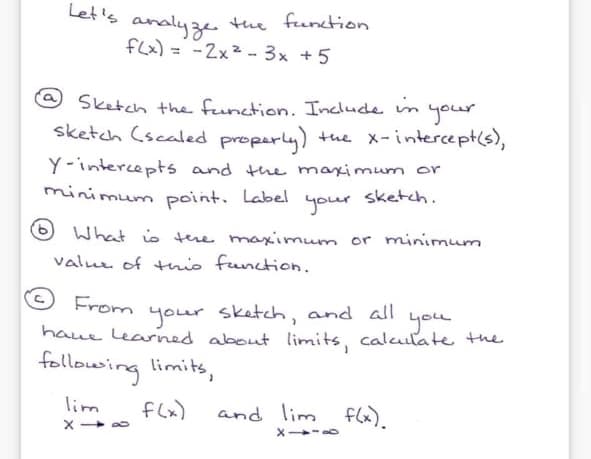 Let's analyze the function
f(x) = -2x² - 3x + 5
(a) Sketch the function. Include in your
sketch (scaled properly) the x-intercept(s),
y-intercepts and the maximum or
minimum point. Label your sketch.
(b) What is tere maximum or minimum
value of this function.
(c) From your sketch, and all you
have learned about limits, calculate the
following limits,
lim x→∞ f(x) and lim x→-∞ f(x).